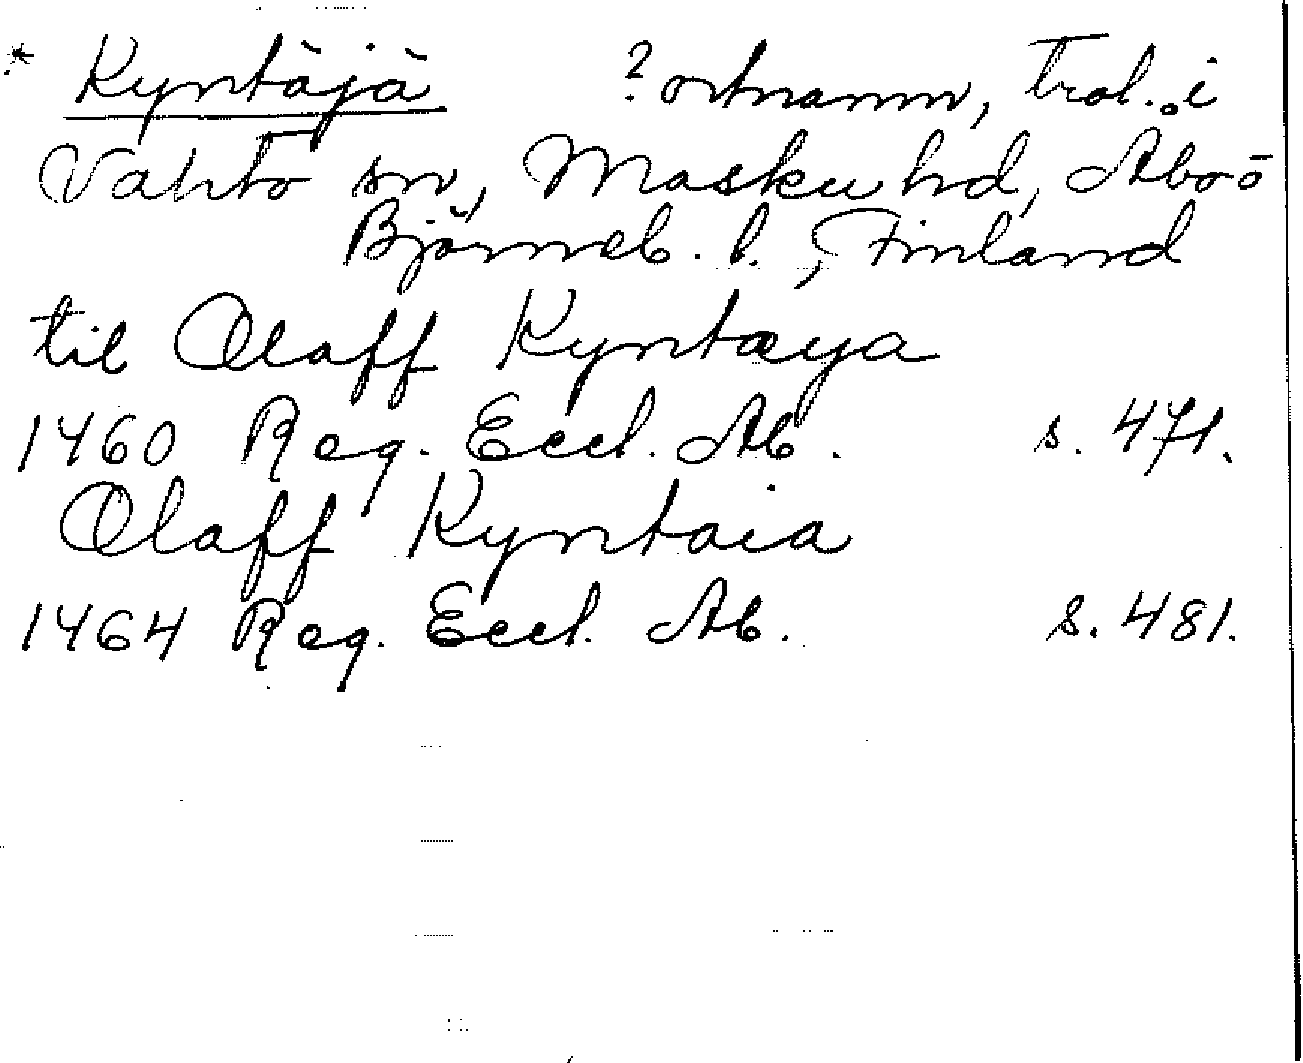 * Kyntäjä ? ortnamn, trol. i
Vahto sn, Masku hd, Åbo o
Björneb. l., Finland
til Olaff Kyntæya
1460 Reg. Eccl. Ab. s. 471.
Olaff Kyntaia
1464 Reg. Eccl. Ab. s. 481.